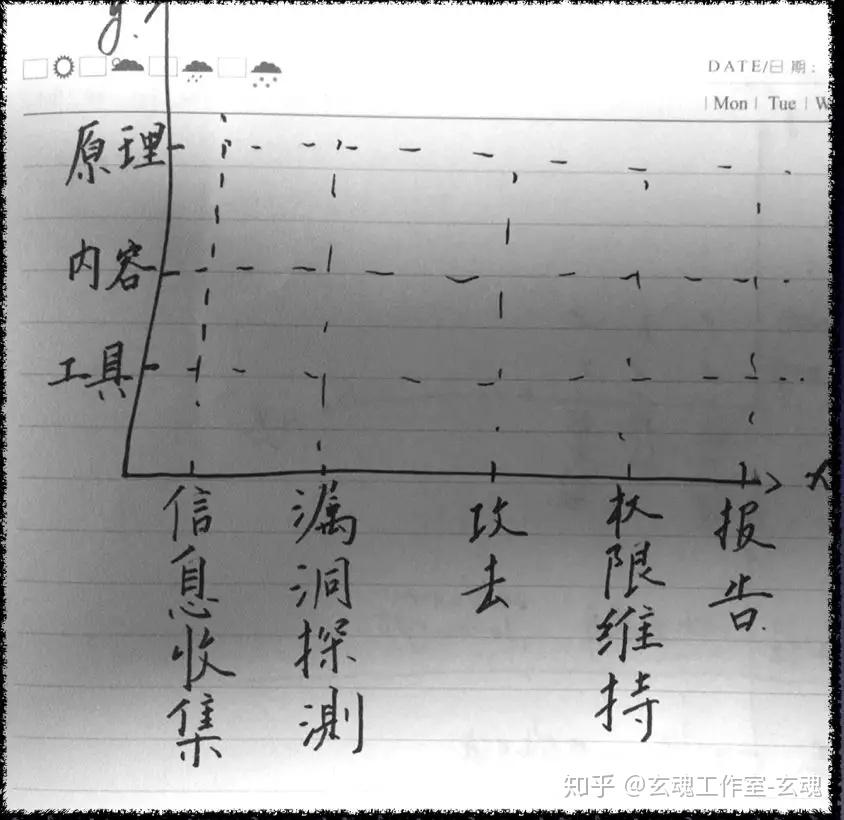 y.
DATE/日期:
Mon Tue W
原理
内容
工具
x
信息收集
漏洞探测
攻去
权限维持
报告.
知乎 @玄魂工作室-玄魂